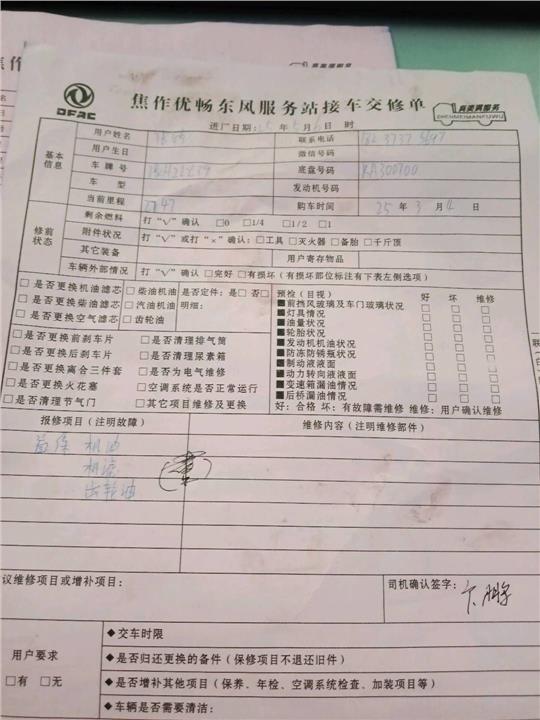 焦作
DFAC
焦作优畅东风服务站接车交修单
真美满服务
ZHENMEIMANFUWU
进厂日期: 年 月 日 时
基本信息
用户姓名
联系电话
用户生日
微信号码
车牌号
底盘号码 RA300700
车型
发动机号码
当前里程 2747
购车时间 25年3月4日
修前状态
剩余燃料 打“√”确认 □0 □1/4 □1/2 □1
附件状况 打“√”或打“×”确认:□工具 □灭火器 □备胎 □千斤顶
其它装备
用户寄存物品
车辆外部情况 打“√”确认 □完好 □有损坏(有损坏部位标注有下表左侧选项)
□是否更换机油滤芯 □柴油机油 是否定件:是□ 否□
□是否更换柴油滤芯 □汽油机油 明细:
□是否更换空气滤芯 □齿轮油
□是否更换前刹车片 □是否清理排气筒
□是否更换后刹车片 □是否清理尿素箱
□是否更换离合三件套 □是否为电气维修
□是否更换火花塞 □空调系统是否正常运行
□是否清理节气门 □其它项目维修及更换
预检(目视) 好 坏 维修
■前挡风玻璃及车门玻璃状况 □ □ □
■灯具情况 □ □ □
■油量状况 □ □ □
■轮胎状况 □ □ □
■发动机机油状况 □ □ □
■防冻防锈瓶状况 □ □ □
■制动液液面 □ □ □
■动力转向液液面 □ □ □
■变速箱漏油情况 □ □ □
■后桥漏油情况 □ □ □
好:合格 坏:有故障需维修 维修:用户确认维修
报修项目(注明故障)
维修内容(注明维修部件)
首保 机油
机滤
齿轮油
议维修项目或增补项目:
司机确认签字:
用户要求
□有 □无
◆交车时限
◆是否归还更换的备件(保修项目不退还旧件)
◆是否增补其他项目(保养、年检、空调系统检查、加装项目等)
◆车辆是否需要清洁: